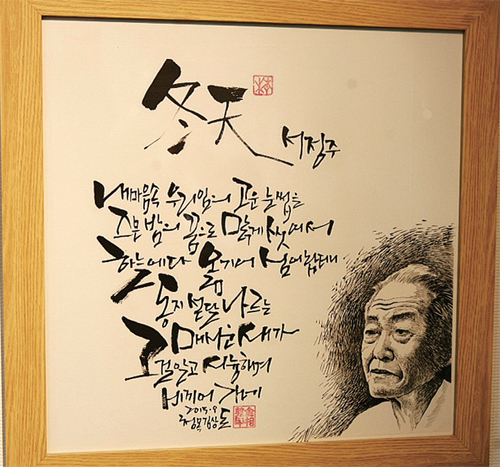 冬天
서정주
내마음속 우리임의 고운 눈썹을
즈믄밤의 꿈으로 맑게 씻어서
하늘에다 옮기어 심어놨더니
동지 섣달 나르는
매서운 새가
그걸 알고 시늉하며
비끼어 가네
2015.9